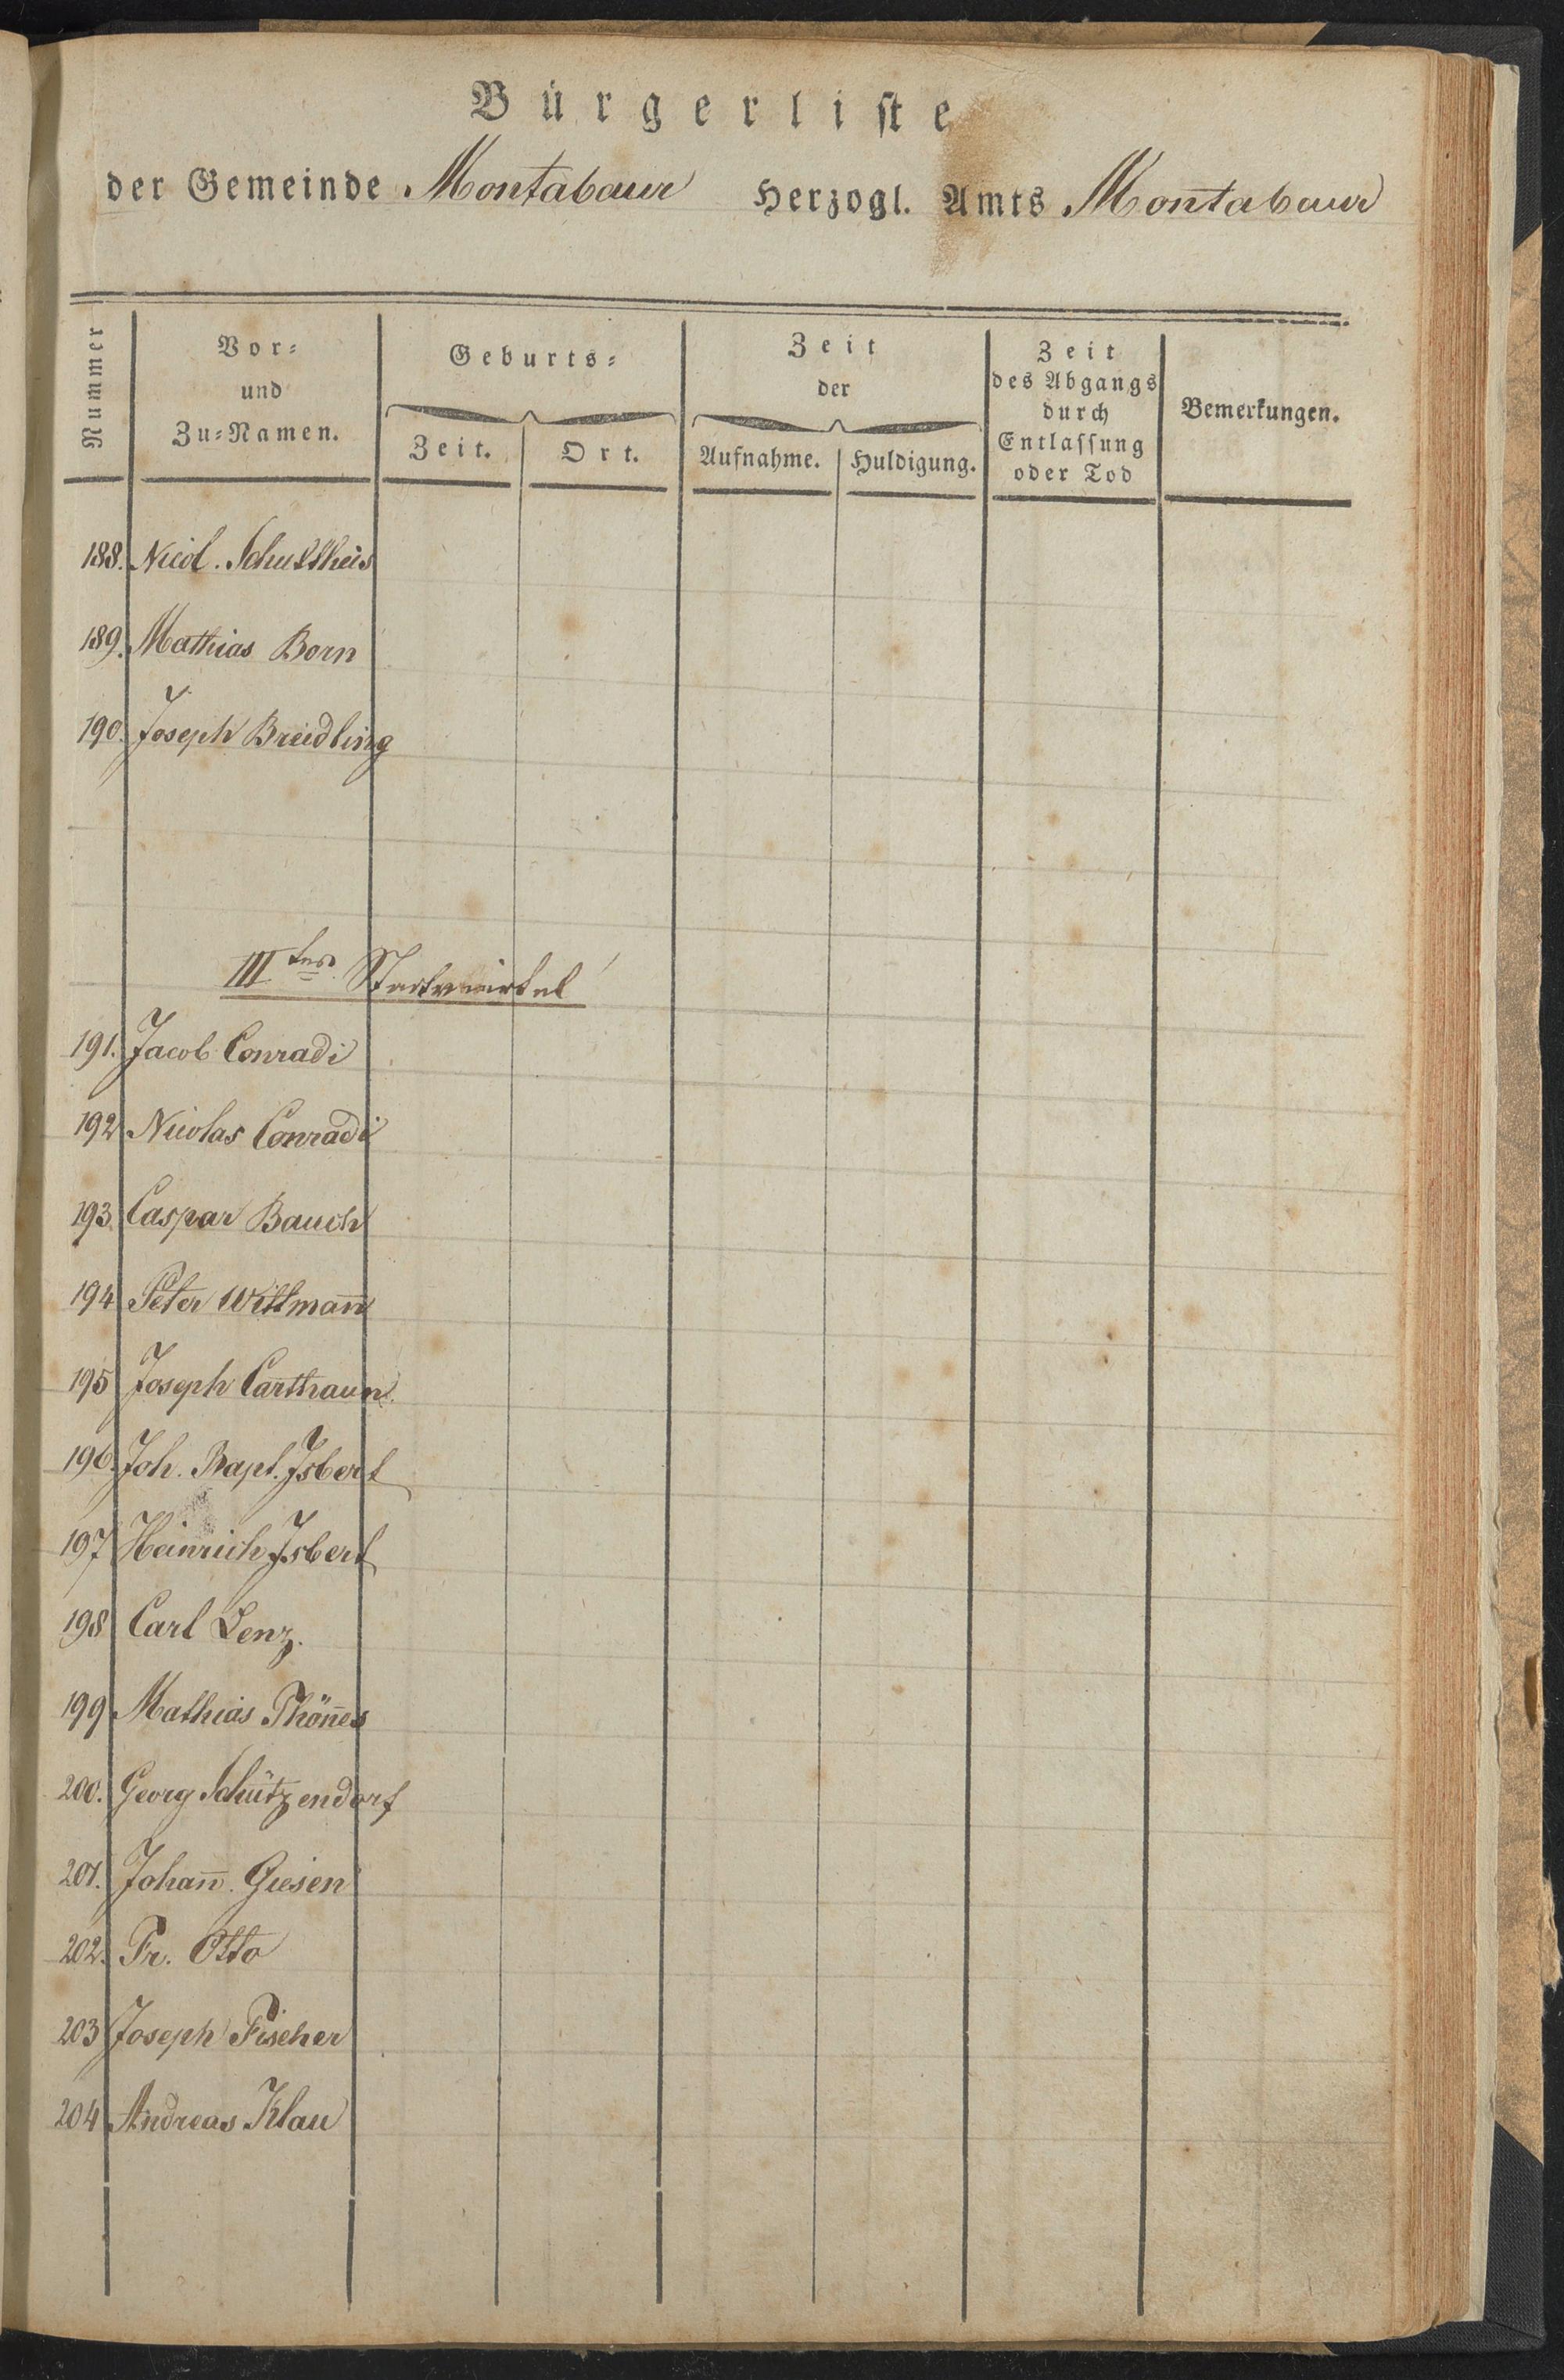 Bürgerliste
der Gemeinde Montabaur Herzogl. Amts Montabaur
Nummer
Vor-
und
Zu-Namen.
Geburts-
Zeit. Ort.
Zeit
der
Aufnahme. Huldigung.
Zeit
des Abgangs
durch
Entlassung
oder Tod
Bemerkungen.
188. Nicol. Schultheis
189. Mathias Born
190. Joseph Breidling
IIItes Stadtviertel
191. Jacob Conradi
192 Nicolas Conradi
193. Caspar Bauch
194 Peter Wittmann̄
195 Joseph Carthaun.
196. Joh. Bapt. Isbert
197 Heinrich Isbert
198 Carl Lenz.
199 Mathias Thön̄es
200. Georg Schützendorf
201. Johan̄ Giesen
202. Fr. Otto
203 Joseph Fischer
204 Andreas Klau